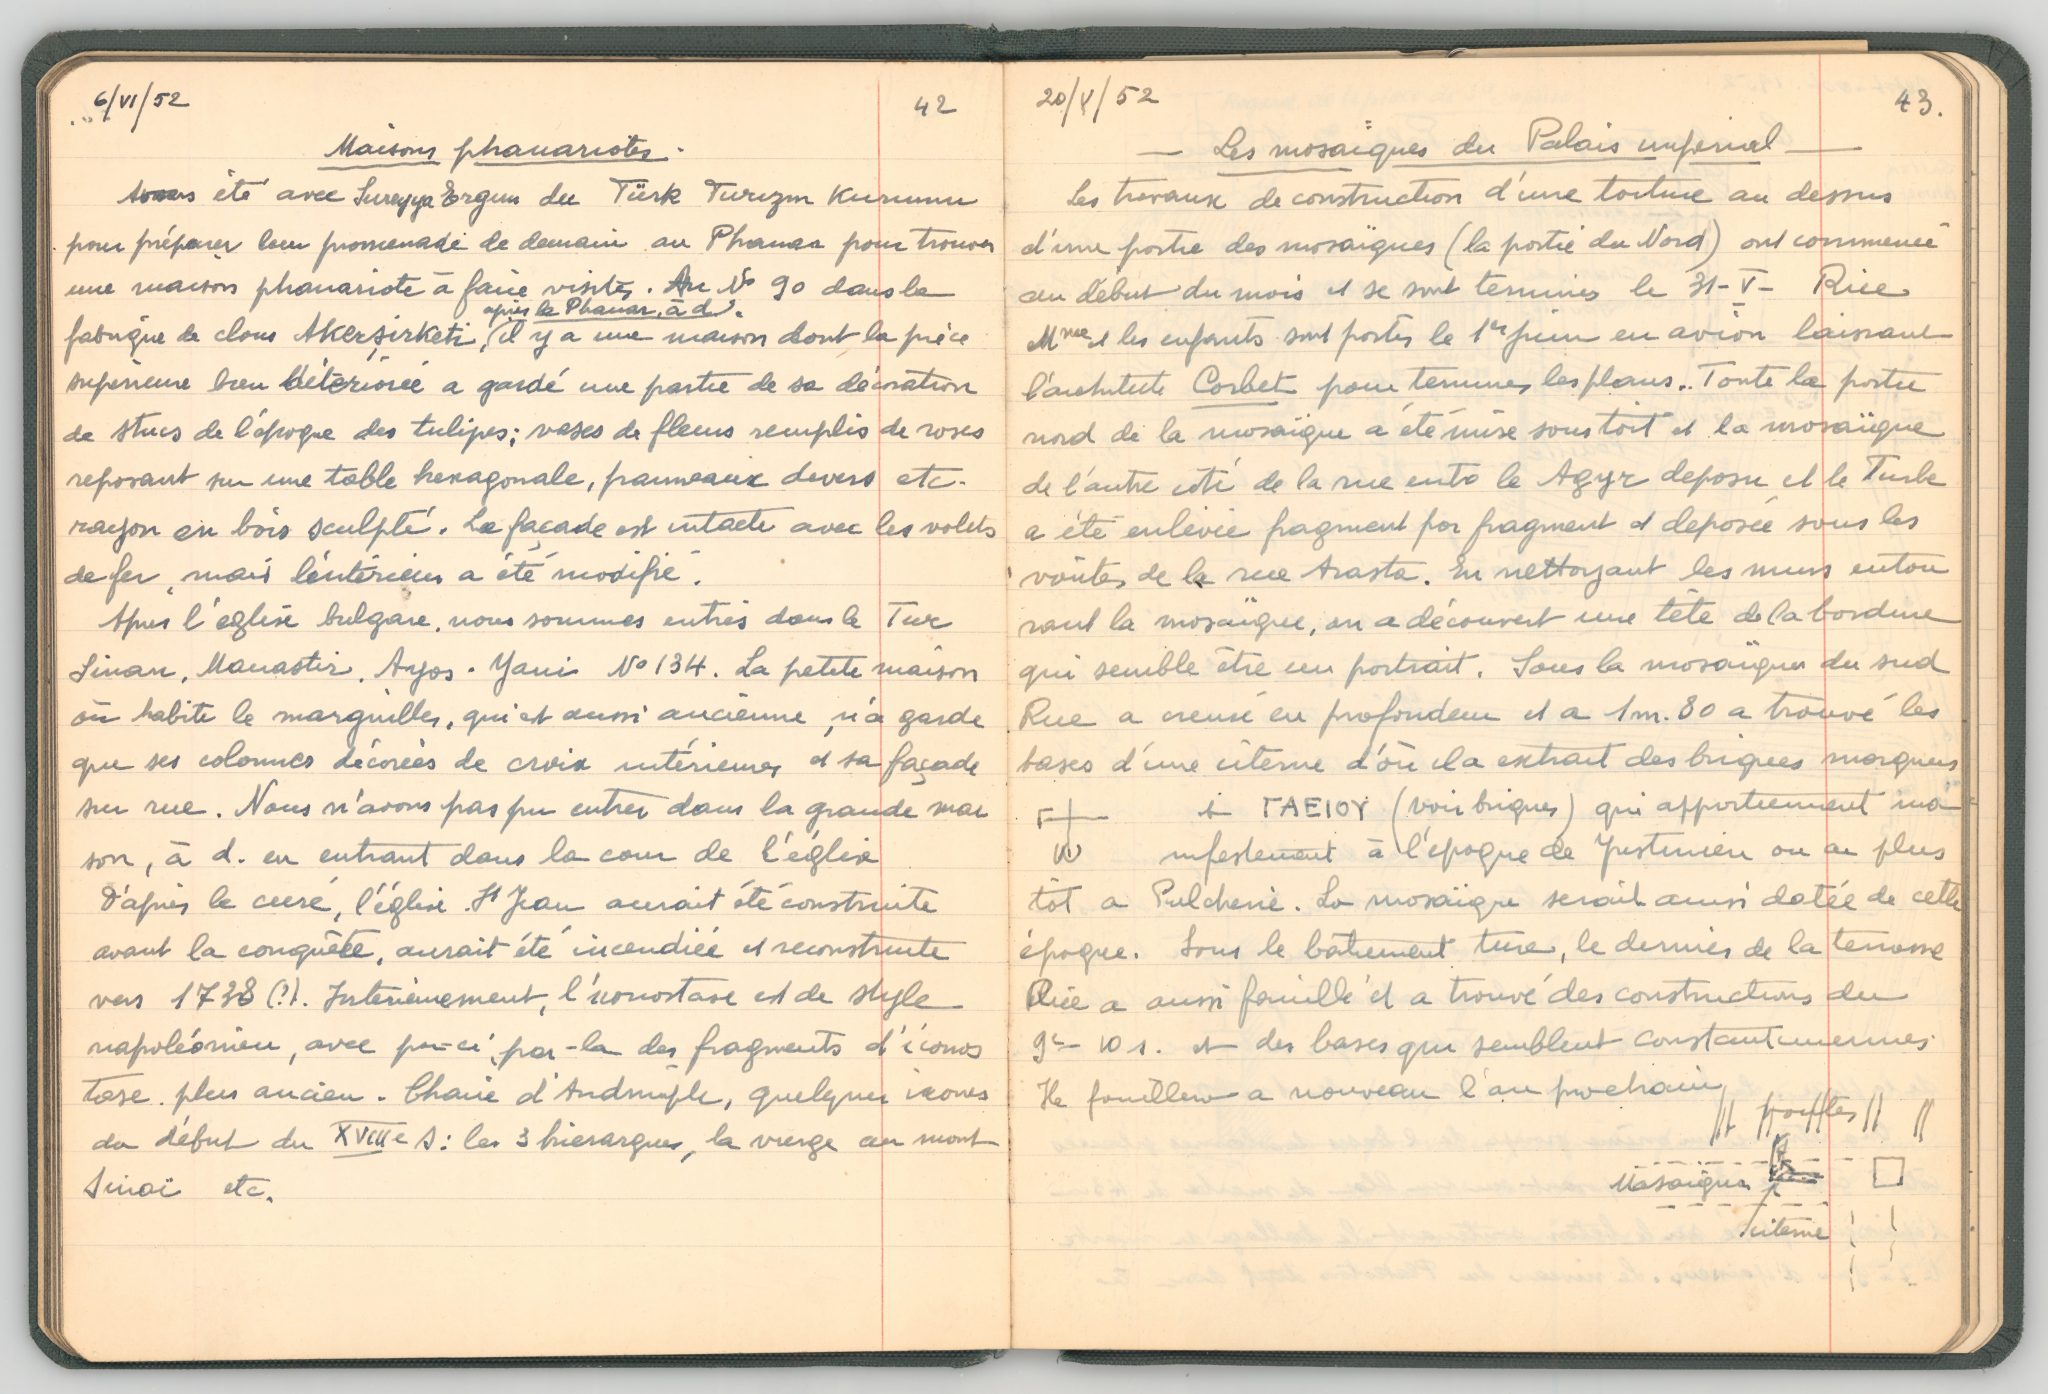 6/VI/52
42
Maisons phanariotes.
été avec Sureyya Ergun du Türk Turizm Kurumu
pour préparer leur promenade de demain au Phanar pour trouver
une maison phanariote à faire visiter. Au No 90 dans la
après le Phanar, à d.
fabrique de clous Akerşirketi, il y a une maison dont la pièce
supérieure bien détériorée a gardé une partie de sa décoration
de stucs de l'époque des tulipes; vases de fleurs remplis de roses
reposant sur une table hexagonale, panneaux divers etc.
rayon en bois sculpté. La façade est intacte avec les volets
de fer, mais l'intérieur a été modifié.
Après l'église bulgare, nous sommes entrés dans le Tur
Sinan, Manastir, Ayos-Yani No 134. La petite maison
où habite le marguiller, qui est aussi ancienne, n'a gardé
que ses colonnes décorées de croix intérieures et sa façade
sur rue. Nous n'avons pas pu entrer dans la grande mai
son, à d. en entrant dans la cour de l'église
D'après le curé, l'église St Jean aurait été construite
avant la conquête, aurait été incendiée et reconstruite
vers 1738 (?). Intérieurement, l'iconostase est de style
napoléonien, avec par-ci, par-la des fragments d'iconos
tase plus ancien. Chaire d'Andrinople, quelques icones
du début du XVIIIe s: les 3 hierarques, la vierge au mont
Sinaï etc.
20/V/52
43.
— Les mosaïques du Palais impérial —
Les travaux de construction d'une toiture au dessus
d'une partie des mosaïques (la partie du Nord) ont commencé
au début du mois et se sont terminés le 31-V- Rice
Mme et les enfants sont partis le 1er juin en avion laissant
l'architecte Corbet pour terminer les plans. Toute la partie
nord de la mosaïque a été mise sous toit et la mosaïque
de l'autre côté de la rue entre le Agyr deposu et le Türbe
a été enlevée fragment par fragment et déposée sous les
voûtes de la rue Arasta. En nettoyant les murs entou
rant la mosaïque, on a découvert une tête de la bordure
qui semble être un portrait. Sous la mosaïque du sud
Rice a creusé en profondeur et a 1m.80 a trouvé les
bases d'une citerne d'où il a extrait des briques marquées
et ΓΑΕΙΟΥ (voir briques) qui appartiennent ma
nifestement à l'époque de Justinien ou au plus
tôt a Pulcherie. La mosaïque serait aussi datée de cette
époque. Sous le bâtiment turc, le dernier de la terrasse
Rice a aussi fouillé et a trouvé des constructions du
9e-10 s. et des bases qui semblent constantiniennes.
Ils fouilleront a nouveau l'an prochain
Mosaïque
citerne